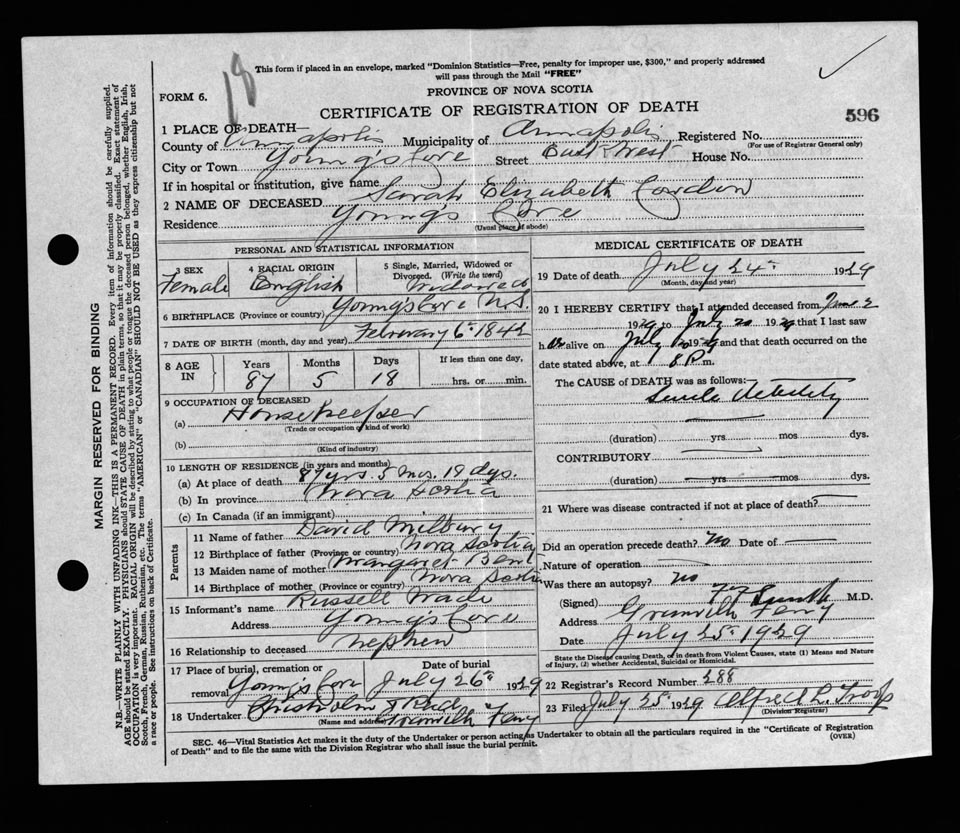 18
This form if placed in an envelope, marked "Dominion Statistics—Free, penalty for improper use, $300," and properly addressed
will pass through the Mail "FREE"
PROVINCE OF NOVA SCOTIA
FORM 6.
CERTIFICATE OF REGISTRATION OF DEATH
596
1 PLACE OF DEATH—
County of Annapolis Municipality of Annapolis Registered No.
(For use of Registrar General only)
City or Town Young's Cove Street East & West House No.
If in hospital or institution, give name
2 NAME OF DECEASED Sarah Elizabeth
Residence Young's Cove
(Usual place of abode)
PERSONAL AND STATISTICAL INFORMATION
3 SEX 4 RACIAL ORIGIN 5 Single, Married, Widowed or
Divorced. (Write the word)
Female English Widowed
6 BIRTHPLACE (Province or country) Young's Cove N.S.
7 DATE OF BIRTH (month, day and year) February 6th 1842
8 AGE IN Years Months Days If less than one day,
87 5 18 hrs. or min.
9 OCCUPATION OF DECEASED
(a) Housekeeper
(Trade or occupation or kind of work)
(b)
(Kind of industry)
10 LENGTH OF RESIDENCE (in years and months)
(a) At place of death 87 yrs. 5 Mos. 19 dys.
(b) In province Nova Scotia
(c) In Canada (if an immigrant)
Parents
11 Name of father David Milbury
12 Birthplace of father (Province or country) Nova Scotia
13 Maiden name of mother Margaret Bent
14 Birthplace of mother (Province or country) Nova Scotia
15 Informant's name Russell Wade
Address Young's Cove
16 Relationship to deceased Nephew
17 Place of burial, cremation or Date of burial
removal Young's Cove July 26th 1929
18 Undertaker Chisholm & Reed
(Name and address) Granville Ferry
MEDICAL CERTIFICATE OF DEATH
19 Date of death July 24th 1929
(Month, day and year)
20 I HEREBY CERTIFY that I attended deceased from June 2
1929 to July 20 1929 that I last saw
her alive on July 20 1929 and that death occurred on the
date stated above, at 8 P.m.
The CAUSE of DEATH was as follows:
Senile debility
(duration) yrs mos dys.
CONTRIBUTORY
(duration) yrs mos dys.
21 Where was disease contracted if not at place of death?
Did an operation precede death? No Date of
Nature of operation
Was there an autopsy? No
(Signed) Smith M.D.
Address Granville Ferry
Date July 25th 1929
State the Disease causing Death, or in death from Violent Causes, state (1) Means and Nature
of Injury, (2) whether Accidental, Suicidal or Homicidal.
22 Registrar's Record Number 288
23 Filed July 25th 1929 Alfred L. Troop
(Division Registrar)
SEC. 46—Vital Statistics Act makes it the duty of the Undertaker or person acting as Undertaker to obtain all the particulars required in the "Certificate of Registration
of Death" and to file the same with the Division Registrar who shall issue the burial permit.
(OVER)
MARGIN RESERVED FOR BINDING
N.B.—WRITE PLAINLY WITH UNFADING INK—THIS IS A PERMANENT RECORD. Every item of information should be carefully supplied.
AGE should be stated EXACTLY. PHYSICIANS should STATE CAUSE OF DEATH in plain terms, so that it may be properly classified. Exact statement of
OCCUPATION is very important. RACIAL ORIGIN will be described by stating to what people or tongue the deceased person belonged, whether English, Irish,
Scotch, French, German, Russian, Ruthenian, etc. The terms "AMERICAN" or "CANADIAN" SHOULD NOT BE USED as they express citizenship but not
a race or people. See instructions on back of Certificate.